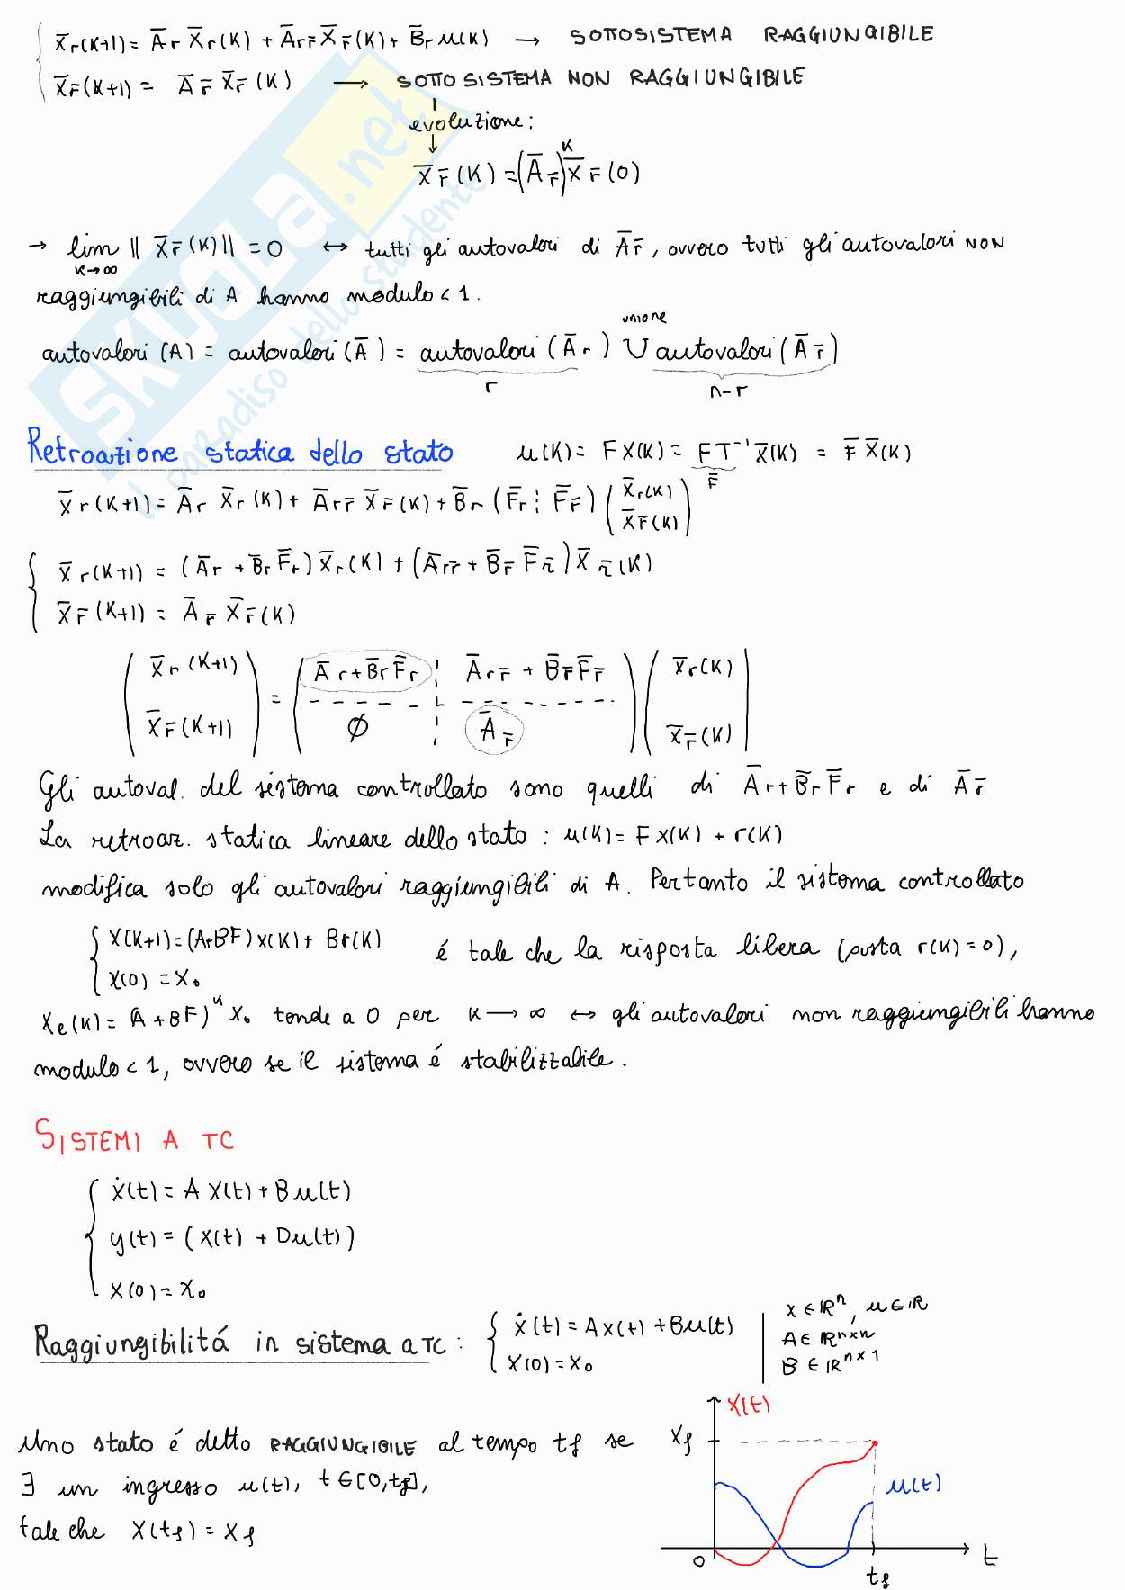 x̄r(k+1) = Ār x̄r(k) + Ārr̄ x̄r̄(k) + B̄r u(k) → SOTTOSISTEMA RAGGIUNGIBILE
x̄r̄(k+1) = Ār̄ x̄r̄(k) → SOTTO SISTEMA NON RAGGIUNGIBILE
evoluzione:
x̄r̄(k) = (Ār̄)^k x̄r̄(0)
→ lim k→∞ || x̄r̄(k) || = 0 ↔ tutti gli autovalori di Ār̄, ovvero tutti gli autovalori NON
raggiungibili di A hanno modulo < 1.
unione
autovalori (A) = autovalori (Ā) = autovalori (Ār) ∪ autovalori (Ār̄)
r n-r
Retroazione statica dello stato u(k) = Fx(k) = FT⁻¹ x̄(k) = F̄ x̄(k)
F̄
x̄r(k+1) = Ār x̄r(k) + Ārr̄ x̄r̄(k) + B̄r (F̄r ¦ F̄r̄) (x̄r(k) x̄r̄(k))
x̄r(k+1) = (Ār + B̄r F̄r) x̄r(k) + (Ārr̄ + B̄r̄ F̄r̄) x̄r̄(k)
x̄r̄(k+1) = Ār̄ x̄r̄(k)
( x̄r(k+1) ) = ( Ār + B̄r F̄r ¦ Ārr̄ + B̄r̄ F̄r̄ ) ( x̄r(k) )
( x̄r̄(k+1) ) ( ∅ ¦ Ār̄ ) ( x̄r̄(k) )
Gli autoval. del sistema controllato sono quelli di Ār + B̄r F̄r e di Ār̄
La retroaz. statica lineare dello stato : u(k) = Fx(k) + r(k)
modifica solo gli autovalori raggiungibili di A. Pertanto il sistema controllato
x(k+1) = (A+BF)x(k) + Br(k) é tale che la risposta libera (posta r(k)=0),
x(0) = x₀
xe(k) = (A+BF)^k x₀ tende a 0 per k → ∞ ↔ gli autovalori non raggiungibili hanno
modulo < 1, ovvero se il sistema é stabilizzabile.
SISTEMI A TC
ẋ(t) = A x(t) + B u(t)
y(t) = (x(t) + Du(t))
x(0) = x₀
Raggiungibilitá in sistema a TC : ẋ(t) = Ax(t) + Bu(t)
x(0) = x₀
x ∈ ℝⁿ, u ∈ ℝ
A ∈ ℝⁿˣⁿ
B ∈ ℝⁿˣ¹
Uno stato é detto RAGGIUNGIBILE al tempo tf se
∃ un ingresso u(t), t ∈ [0,tf],
tale che x(tf) = xf
x(t)
xf
u(t)
0
tf
t
SKUOLA.net
il paradiso dello studente